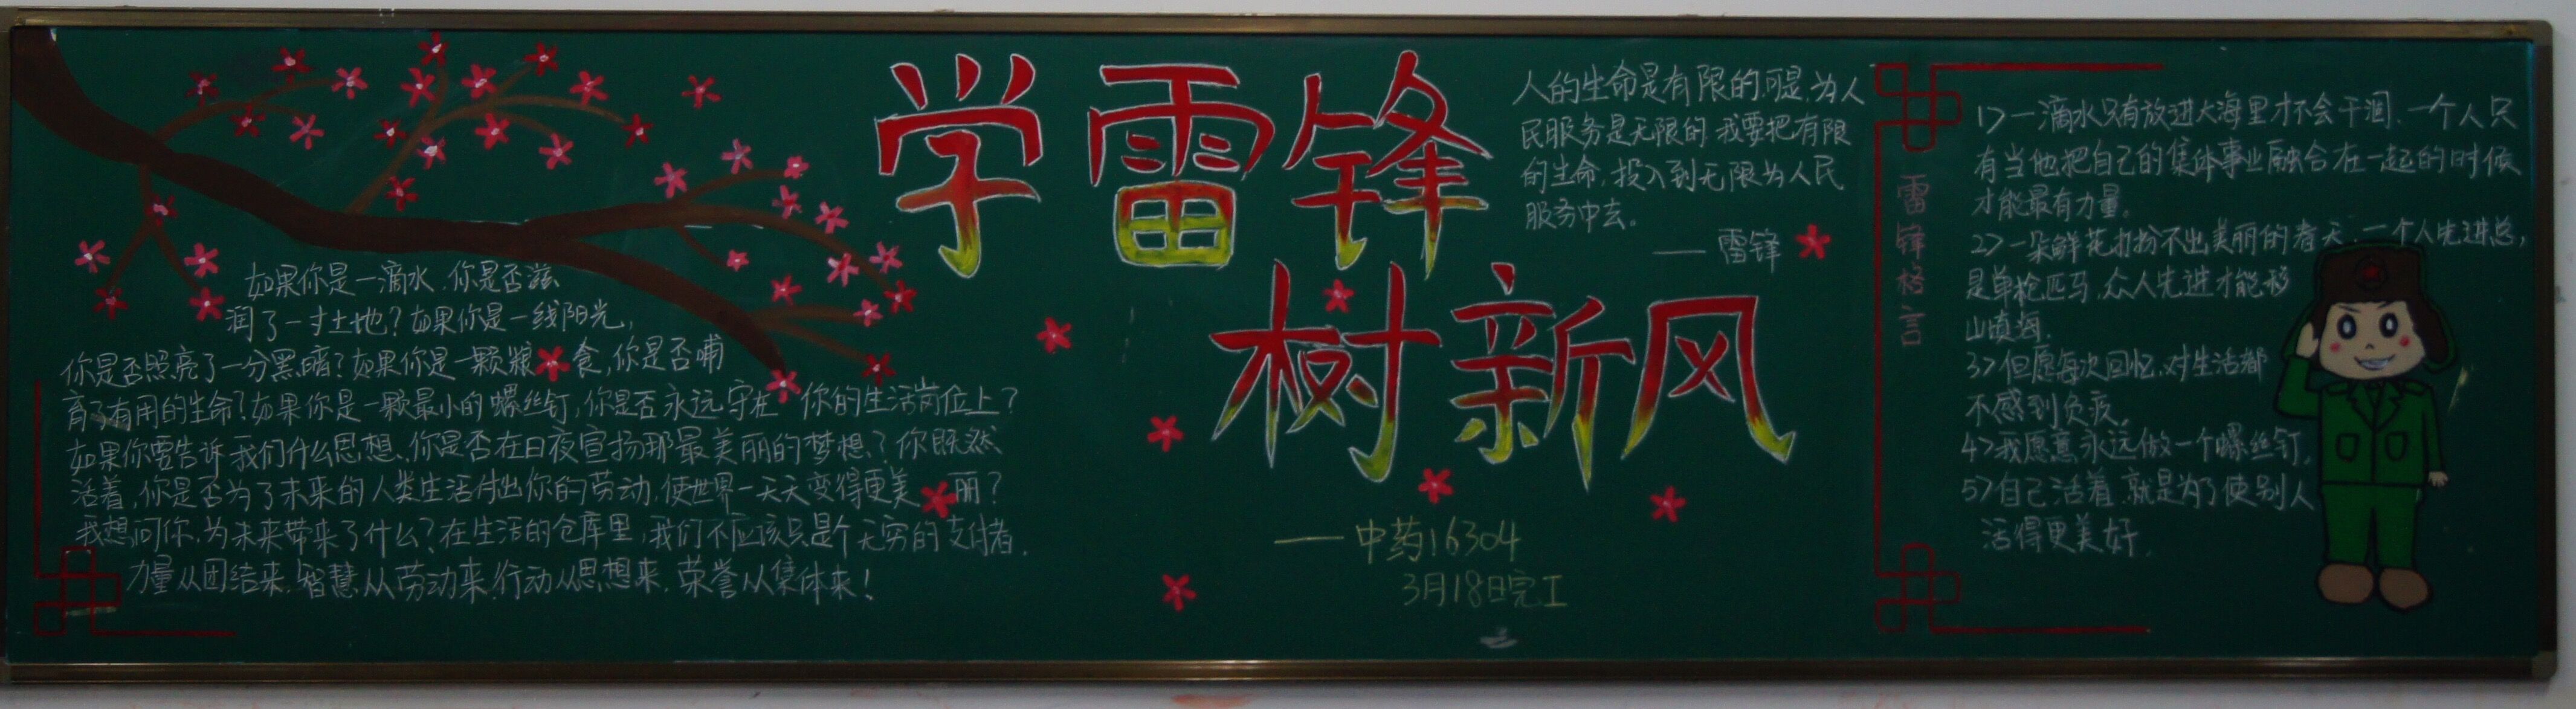 如果你是一滴水,你是否滋
润了一寸土地?如果你是一线阳光,
你是否照亮了一分黑暗?如果你是一颗粮食,你是否哺
育了有用的生命?如果你是一颗最小的螺丝钉,你是否永远守在你的生活岗位上?
如果你要告诉我们什么思想,你是否在日夜宣扬那最美丽的梦想?你既然
活着,你是否为了未来的人类生活付出你的劳动,使世界一天天变得更美丽?
我想问你,为未来带来了什么?在生活的仓库里,我们不应该只是个无穷的支付者.
力量从团结来,智慧从劳动来,行动从思想来,荣誉从集体来!
学雷锋
树新风
人的生命是有限的,可是,为人
民服务是无限的 我要把有限
的生命,投入到无限为人民
服务中去。
——雷锋
——中药16304
3月18日完工
雷锋格言
1>一滴水只有放进大海里才不会干涸,一个人只
有当他把自己的集体事业融合在一起的时候
才能最有力量。
2>一朵鲜花打扮不出美丽的春天,一个人先进总,
是单枪匹马,众人先进才能移
山填海.
3>但愿每次回忆,对生活都
不感到负疚。
4>我愿意永远做一个螺丝钉.
5>自己活着,就是为了使别人
活得更美好.